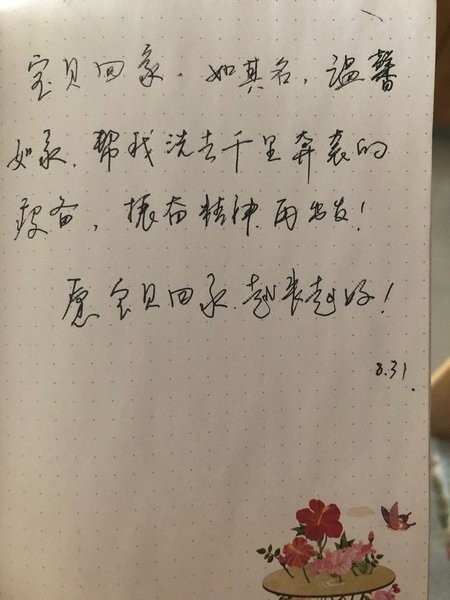 宝贝回家.如其名,温馨
如家.帮我洗去千里奔袭的
疲备,振奋精神再出发!
愿宝贝回家越来越好!
8.31.